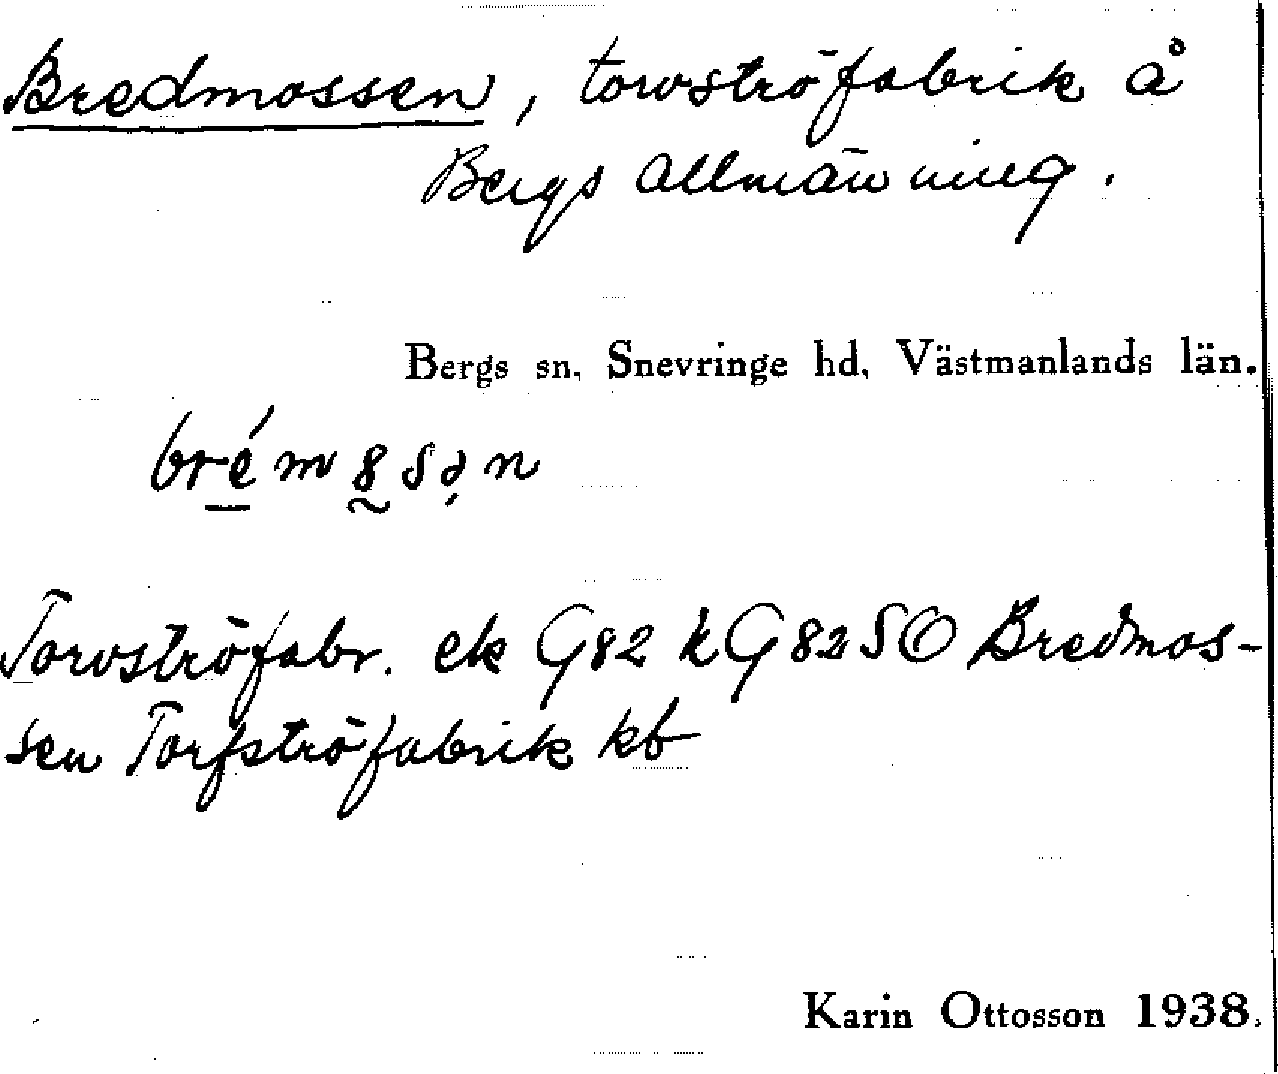 Bredmossen, torvströfabrik å
Bergs allmänning.
Bergs sn, Snevringe hd, Västmanlands län.
Torvströfabr. ek G82 k G82 SO Bredmos-
sen Torfströfabrik kb
Karin Ottosson 1938.